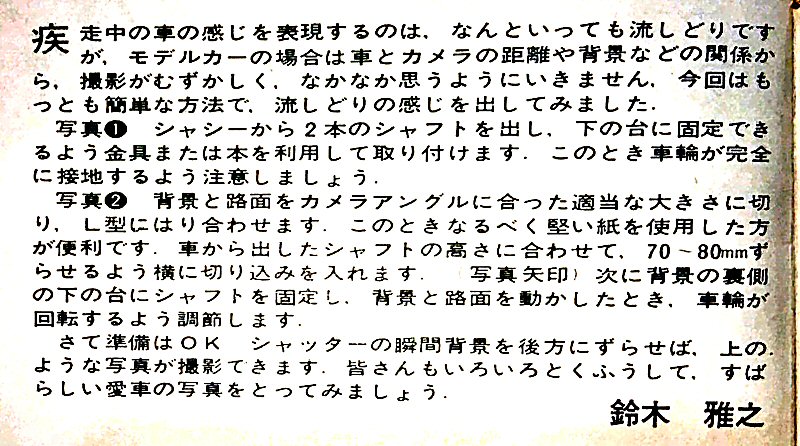 疾走中の車の感じを表現するのは，なんといっても流しどりです
が，モデルカーの場合は車とカメラの距離や背景などの関係か
ら，撮影がむずかしく，なかなか思うようにいきません．今回はも
っとも簡単な方法で，流しどりの感じを出してみました．
写真❶　シャシーから２本のシャフトを出し，下の台に固定でき
るよう金具または本を利用して取り付けます．このとき車輪が完全
に接地するよう注意しましょう．
写真❷　背景と路面をカメラアングルに合った適当な大きさに切
り，Ｌ型にはり合わせます．このときなるべく堅い紙を使用した方
が便利です．車から出したシャフトの高さに合わせて，70～80mmず
らせるよう横に切り込みを入れます．（写真矢印）次に背景の裏側
の下の台にシャフトを固定し，背景と路面を動かしたとき，車輪が
回転するよう調節します．
さて準備はＯＫ　シャッターの瞬間背景を後方にずらせば，上の．
ような写真が撮影できます．皆さんもいろいろとくふうして，すば
らしい愛車の写真をとってみましょう．
鈴木　雅之